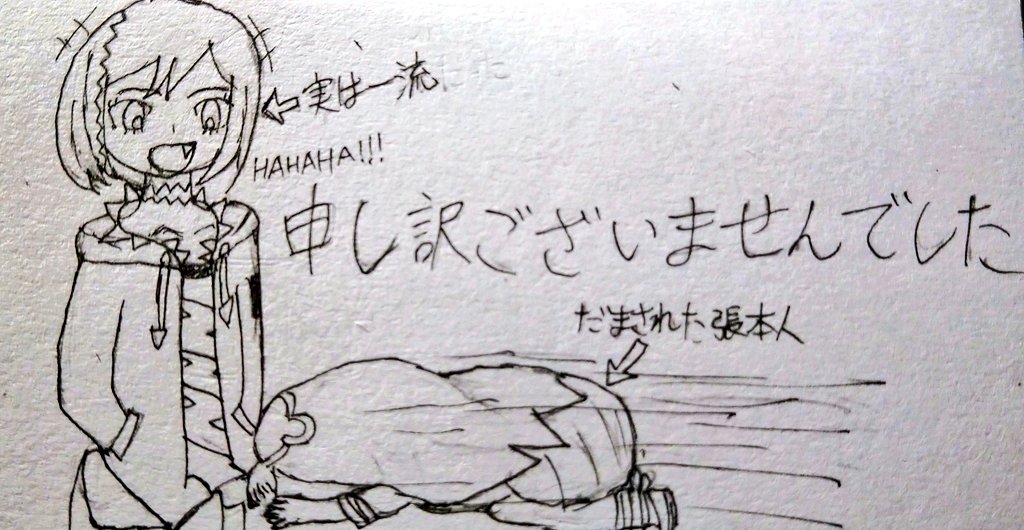 実は一流
HAHAHA!!!
申し訳ございませんでした
だまされた張本人